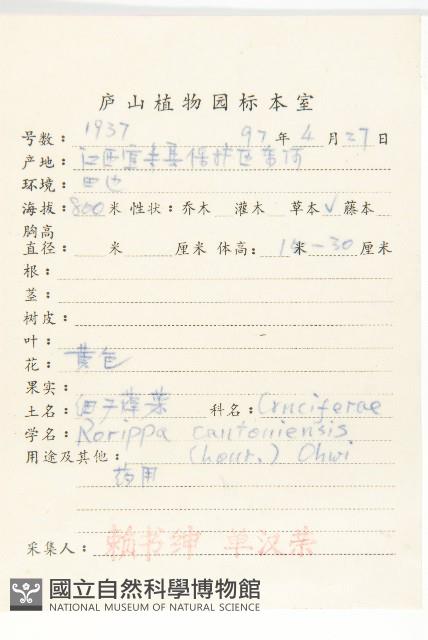 庐山植物园标本室
号数： 1937 97年4月27日
产地： 江西宜丰县保护区东河
环境： 田边
海拔：800米 性状：乔木 灌木 草本√藤本
胸高
直径： 米 厘米 体高： 15米—30厘米
根：
茎：
树皮：
叶：
花： 黄色
果实：
土名： 细子蔊菜 科名：Cruciferae
学名： Rorippa cantoniensis
用途及其他： (Lour.) Ohwi
药用
采集人： 赖书绅 单汉荣
國立自然科學博物館
NATIONAL MUSEUM OF NATURAL SCIENCE